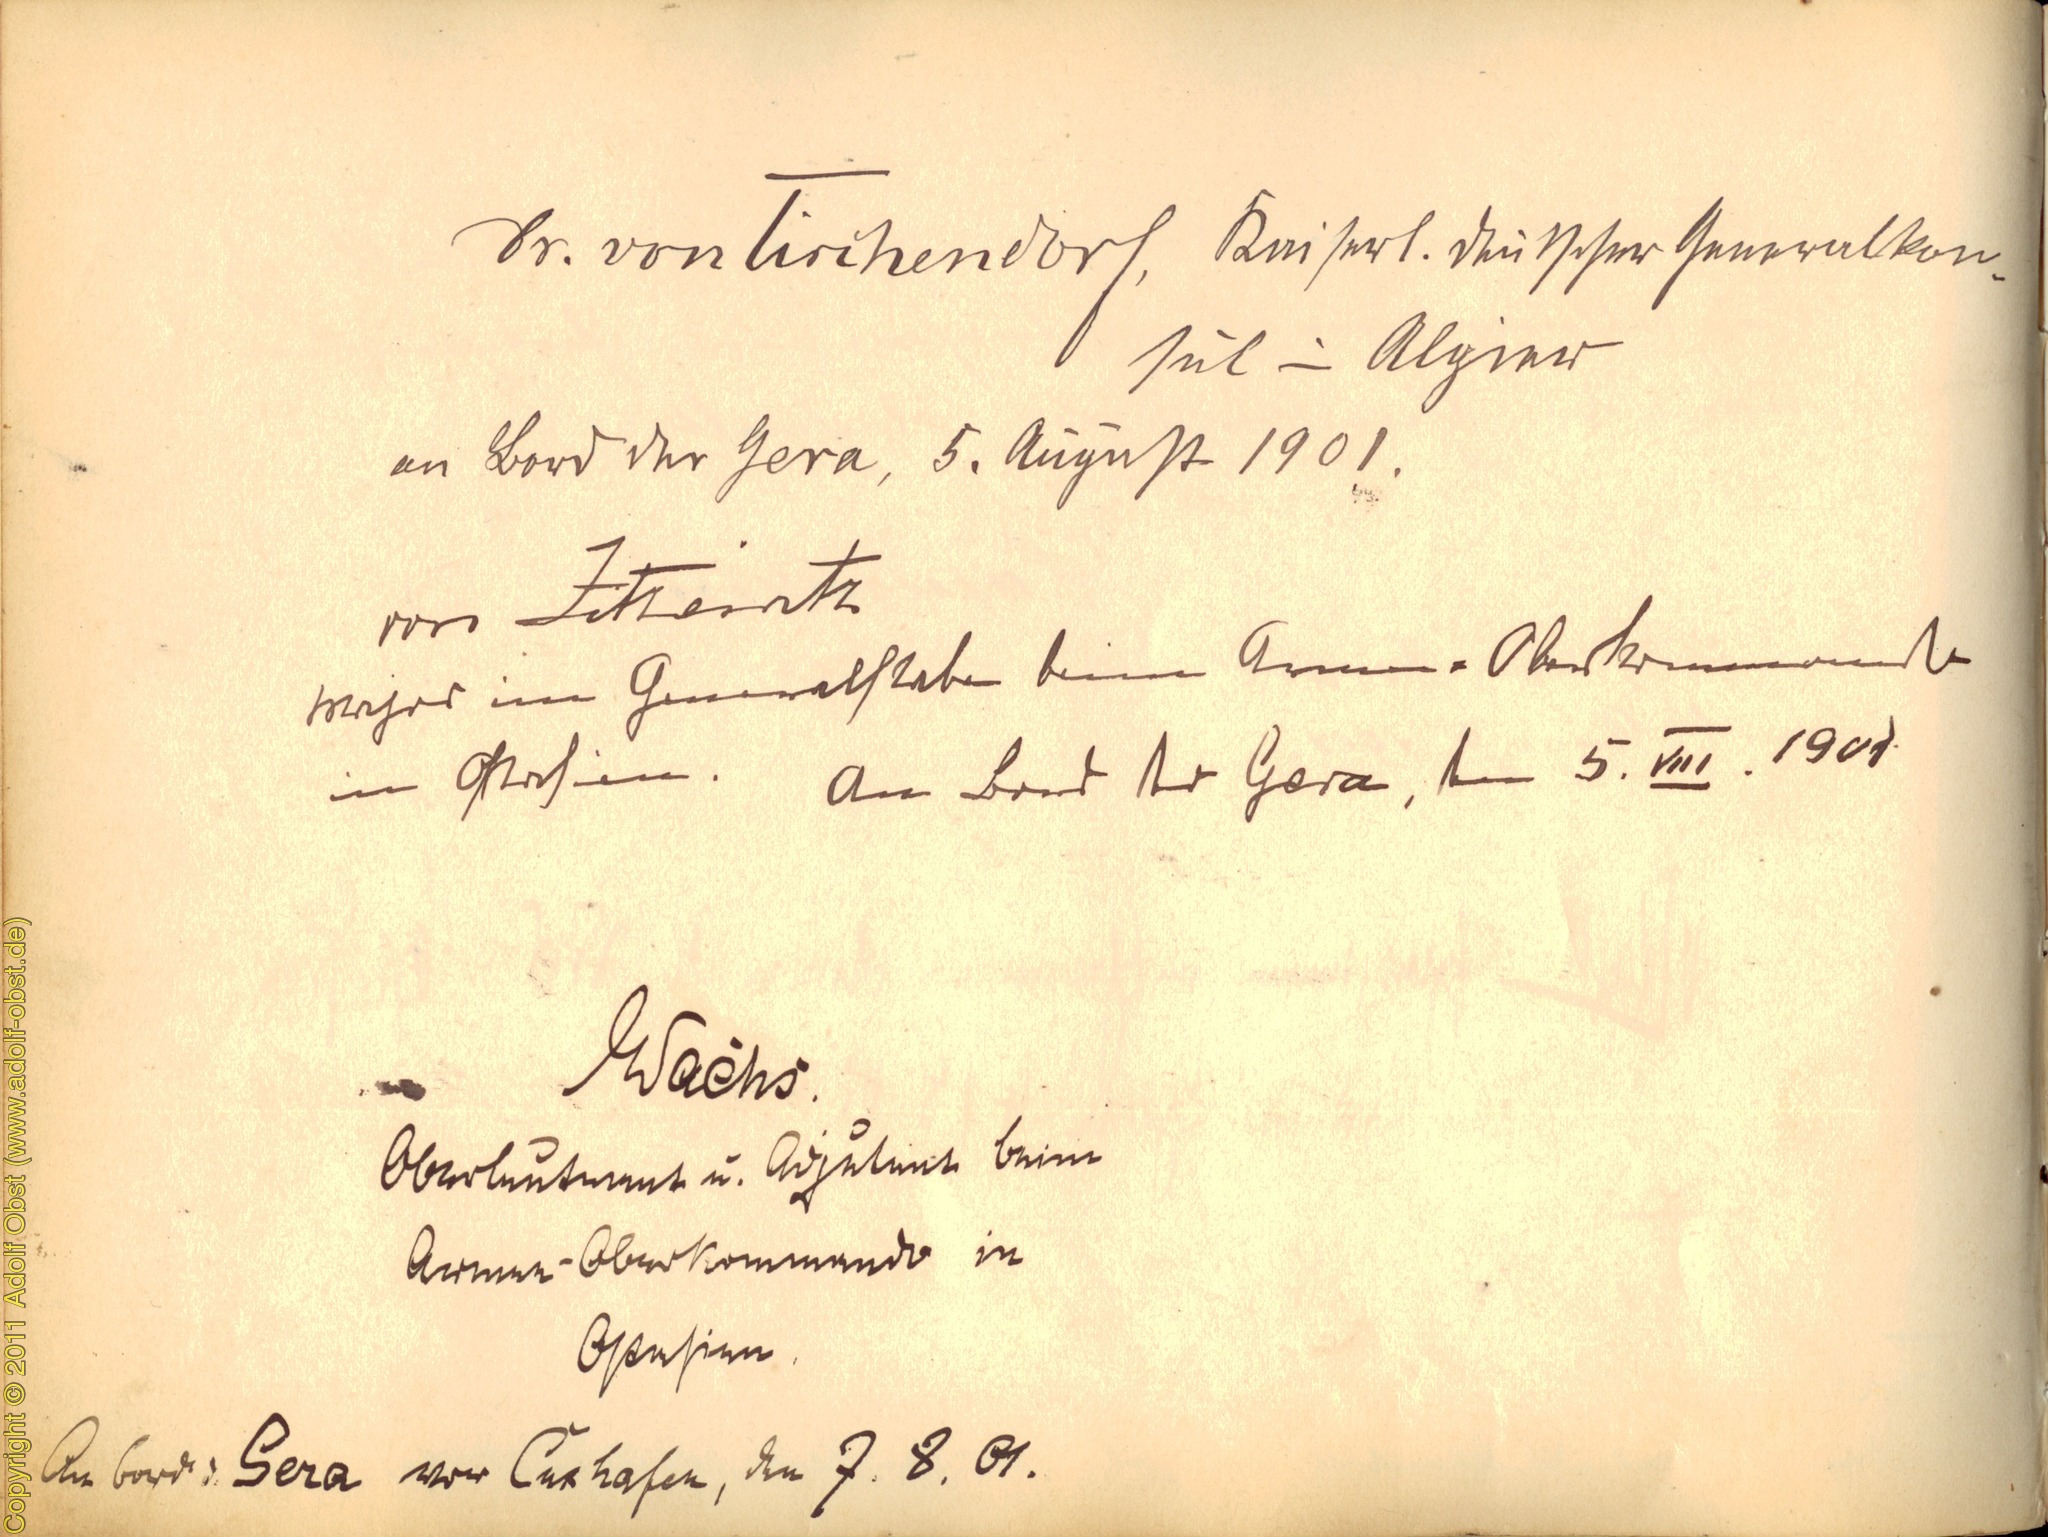 Dr. von Tischendorf, Kaiserl. deutscher Generalkon-
sul in Algier
an Bord der Gera, 5. August 1901.
von Zitzewitz
Major im Generalstabe beim Armee-Oberkommando
in Ostasien. An Bord der Gera, den 5. VIII. 1901
Wachs.
Oberleutnant u. Adjutant beim
Armee-Oberkommando in
Ostasien.
An Bord: Gera vor Cuxhafen, den 7. 8. 01.
Copyright © 2011 Adolf Obst (www.adolf-obst.de)